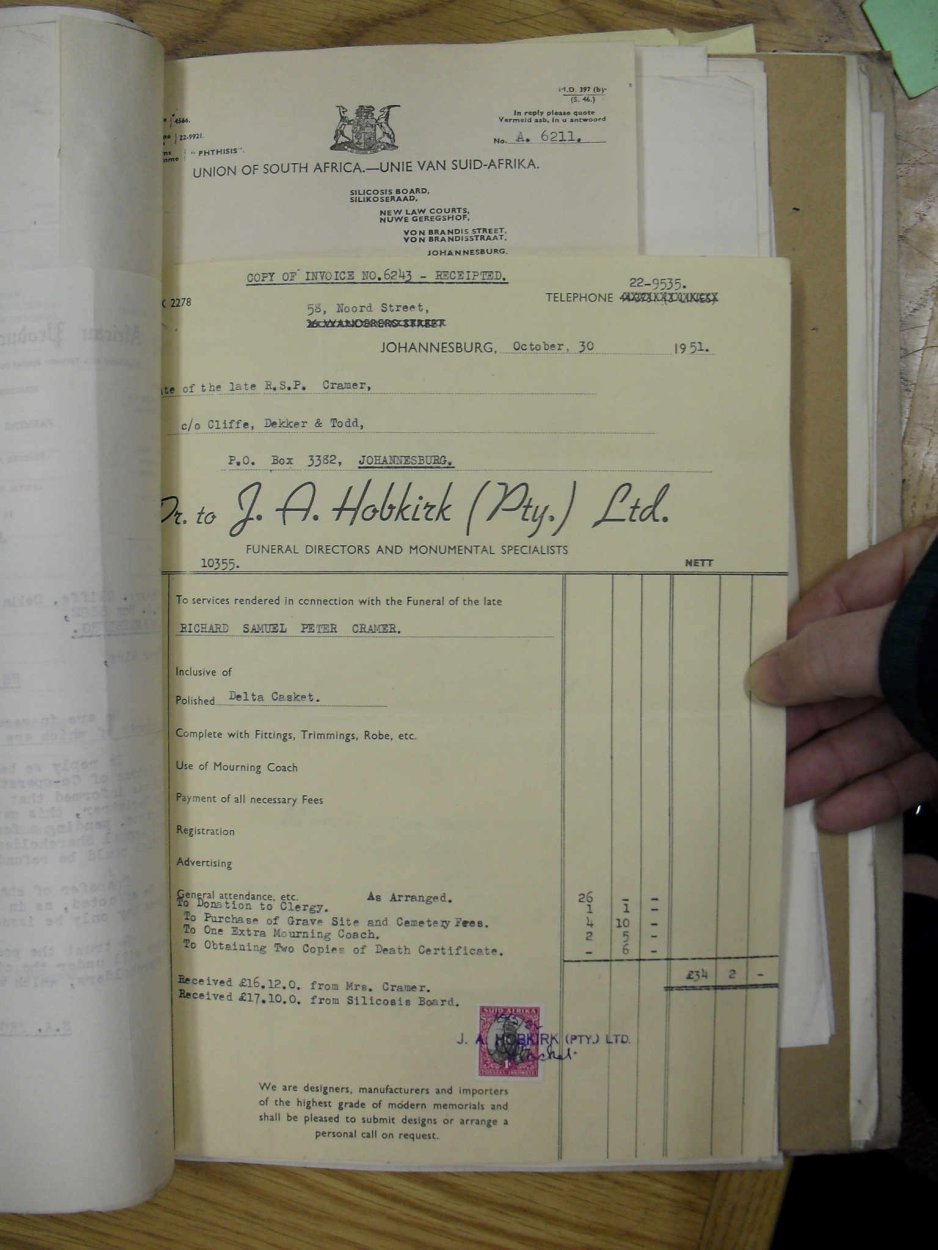 M.D. 397 (b)-
(S. 46.)
4566.
In reply please quote
Vermeld asb. in u antwoord
22-9921.
No. A. 6211.
"PHTHISIS".
UNION OF SOUTH AFRICA.—UNIE VAN SUID-AFRIKA.
SILICOSIS BOARD,
SILIKOSERAAD,
NEW LAW COURTS,
NUWE GEREGSHOF,
VON BRANDIS STREET,
VON BRANDISSTRAAT,
JOHANNESBURG.
COPY OF INVOICE NO.6243 - RECEIPTED.
22-9535.
2278
TELEPHONE
58, Noord Street,
26 WANDERERS STREET
JOHANNESBURG, October, 30 1951.
te of the late R.S.P. Cramer,
c/o Cliffe, Dekker & Todd,
P.O. Box 3382, JOHANNESBURG.
Dr. to J. A. Hobkirk (Pty.) Ltd.
FUNERAL DIRECTORS AND MONUMENTAL SPECIALISTS
10355. NETT
To services rendered in connection with the Funeral of the late
RICHARD SAMUEL PETER CRAMER.
Inclusive of
Polished Delta Casket.
Complete with Fittings, Trimmings, Robe, etc.
Use of Mourning Coach
Payment of all necessary Fees
Registration
Advertising
General attendance, etc. As Arranged. 26 - -
To Donation to Clergy. 1 1 -
To Purchase of Grave Site and Cemetery Fees. 4 10 -
To One Extra Mourning Coach. 2 5 -
To Obtaining Two Copies of Death Certificate. - 6 -
£34 2 -
Received £16.12.0. from Mrs. Cramer.
Received £17.10.0. from Silicosis Board.
SUID-AFRIKA
J. A. HOBKIRK (PTY.) LTD.
We are designers, manufacturers and importers
of the highest grade of modern memorials and
shall be pleased to submit designs or arrange a
personal call on request.